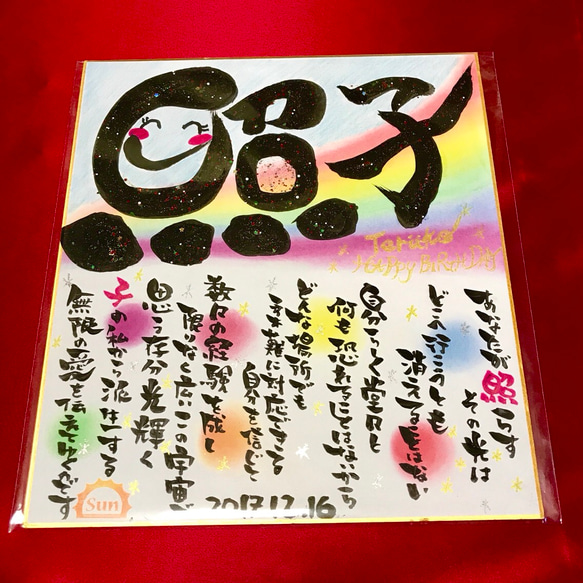 照子
Teruko
Happy BiRthDay
あなたが照らす
その光は
どこの行こうとも
消える事はない
自分らしく堂々と
何も恐れることはないから
どんな場所でも
柔軟に対応できる
自分を信じて
数々の経験を感し
限りなく広いこの宇宙で
思う存分光輝く
子の私から派生する
無限の愛を伝えてゆくのです
Sun
2017.12.16